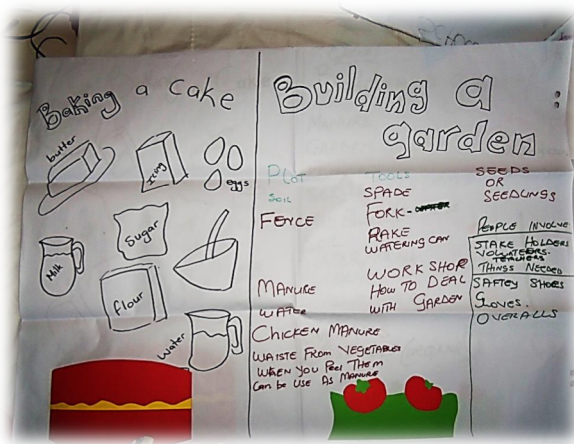 Baking a cake
butter
Icing
eggs
Sugar
Milk
flour
Water
Building a
garden
PLOT
SOIL
FENCE
MANURE
WATER
CHICKEN MANURE
WAISTE FROM VEGETABLES
WHEN YOU PEEL THEM
Can be USE AS MANURE
TOOLS
SPADE
FORK-
RAKE
WATERING CAN
WORK SHOP
HOW TO DEAL
WITH GARDEN
SEEDS
OR
SEEDLINGS
PEOPLE INVOLVE
STAKE HOLDERS
VOLUNTEERS.
TEACHERS
THINGS NEEDED
SAFTEY SHOES
GLOVES.
OVERALLS